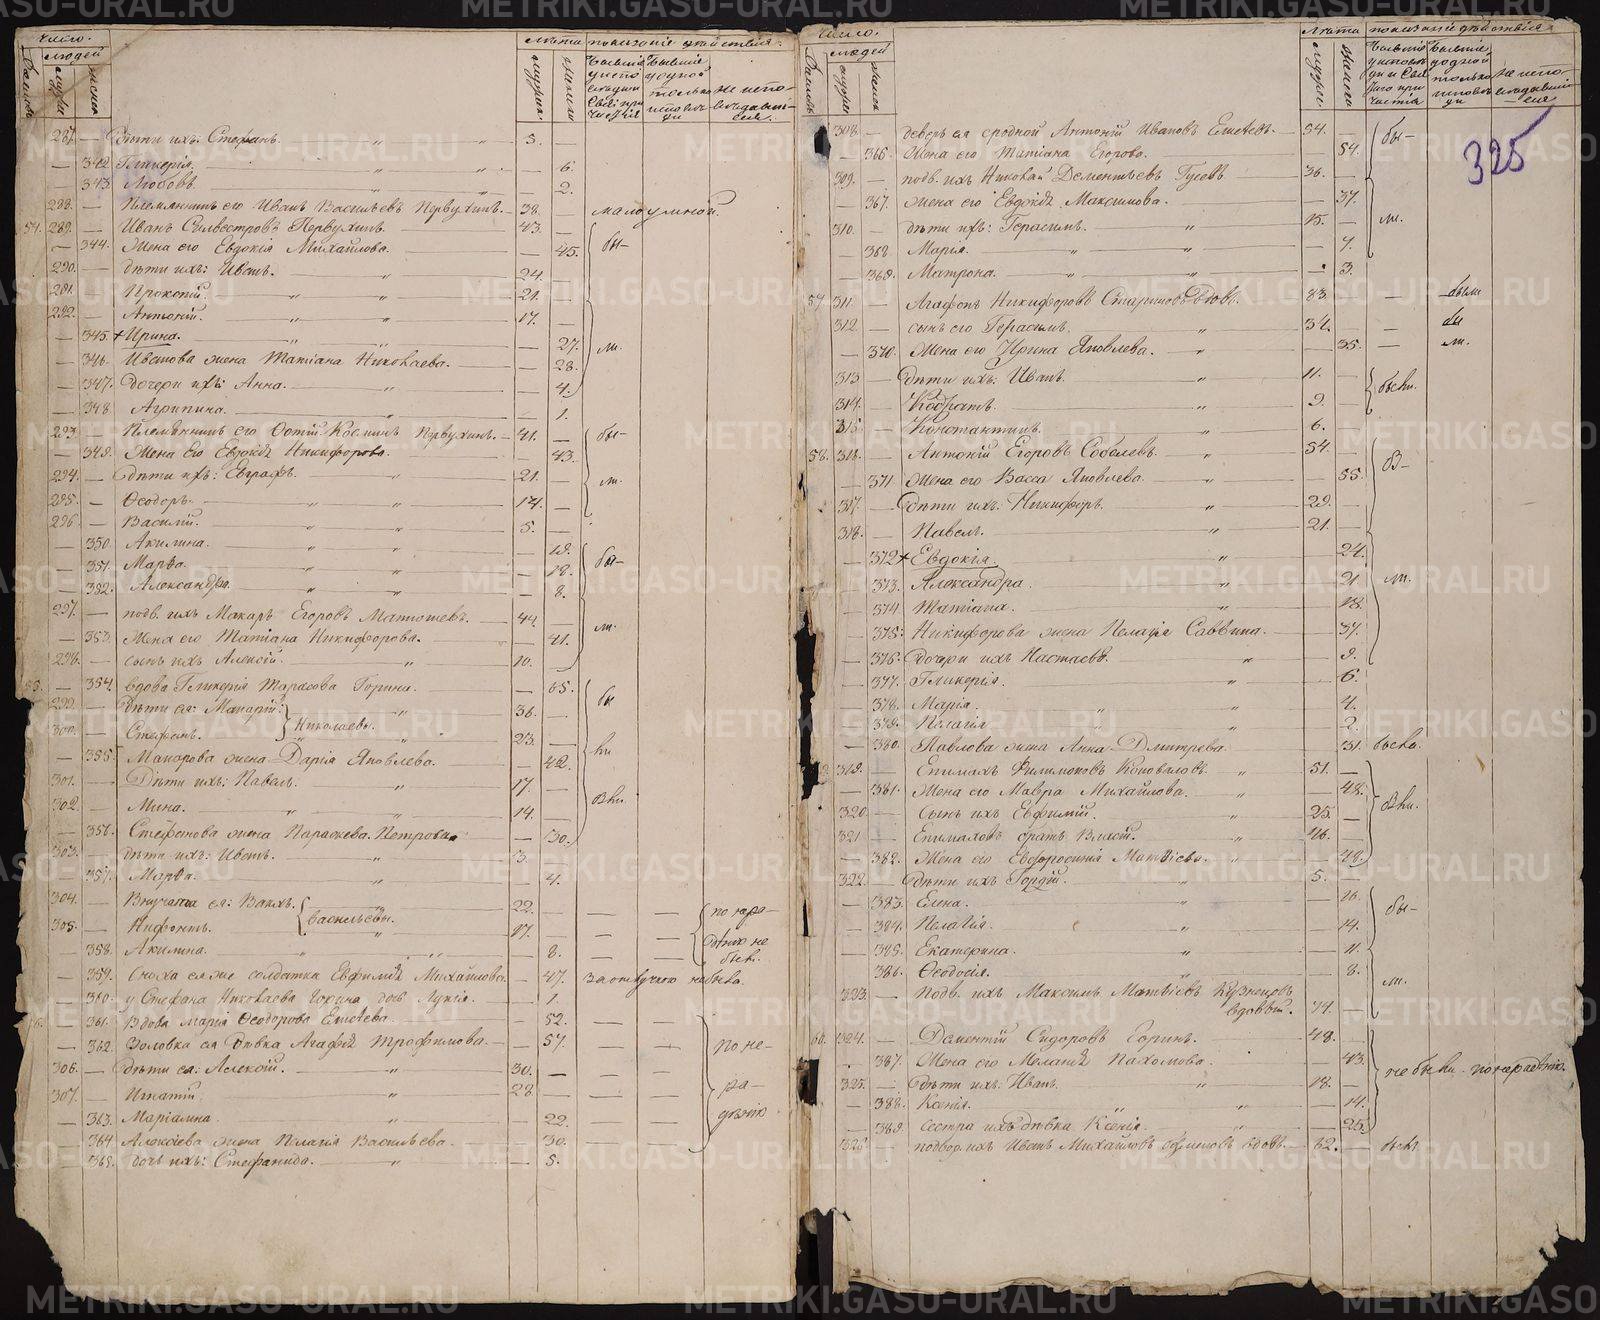 число.
людей
лѣта показаніе дѣйствія.
287. — дѣти ихъ: Стефанъ. 5. —
— 342. Гликерія. — 6.
— 343. Любовь. — 2.
288. — Племянникъ его Иванъ Васильевъ Первухинъ. 38. — малоумной.
54. 289. — Иванъ Сильвестровъ Первухинъ. 43. — бы-
— 344. Жена его Евдокія Михайлова. — 45.
290. — дѣти ихъ: Иванъ. 24. —
291. — Прокопій. 21. —
292. — Антоній. 17. —
— 345. + Ирина. — 27. ли.
— 346. Иванова жена Татіана Николаева. — 28.
— 347. дочери ихъ: Анна. — 4.
— 348. Агрипина. — 1.
293. — Племянникъ его Фотій Косминъ Первухинъ. 41. — бы-
— 349. Жена его Евдокія Никифорова. — 43.
294. — дѣти ихъ: Евграфъ. 21. — ли.
295. — Ѳеодоръ. 14. —
296. — Василій. 5. —
— 350. Акилина. — 19.
— 351. Марѳа. — 12. бы-
— 352. Александра. — 8.
297. — подв. ихъ Макаръ Егоровъ Матюшевъ. 44. —
— 353. Жена его Татіана Никифорова. — 41. ли.
298. — сынъ ихъ Алексій. 10. —
55. — 354. вдова Гликерія Тарасова Горина. — 65. бы
299. — дѣти ея: Макарій. 36. —
300. — Стефанъ. Николаевы. 23. —
— 355. Макарова жена Дарія Яковлева. — 42.
301. — Дѣти ихъ: Павелъ. 17. —
302. — Мина. 14. —
— 356. Стефанова жена Параскева Петрова. — 30.
303. — дѣти ихъ: Иванъ. 3.
— 357. Марѳа. — 4.
304. — Внучата ея: Вакхъ. 22. — — — по нера-
305. — Нифонтъ. Васильевы. 17. — — — дѣнію не
— 358. Акилина. — 8. были.
— 359. Сноха ея же солдатка Евфимія Михайлова. — 47. За отлучкою не была.
— 360. у Стефана Николаева Горина дочь Лукія. — 1.
56. — 361. Вдова Марія Ѳеодорова Елисѣева. — 52. — —
— 362. Золовка ея дѣвка Агафія Трофимова. — 57. — — по не-
306. — дѣти ея: Алексій. 30. — — —
307. — Игнатій. 28. — — — ра-
— 363. Маріамна. — 22. — — дѣнію
— 364. Алексіева жена Пелагія Васильева. — 30. — —
— 365. дочь ихъ: Стефанида. — 5.
число.
людей
лѣта показаніе дѣйствія.
325
308. — деверь ея сродной Антоній Ивановъ Елисѣевъ. 54. — бы-
— 366. Жена его Татіана Егорова. — 54.
309. — подв. ихъ Николай Дементьевъ Гусевъ 36. —
— 367. Жена его Евдокія Максимова. — 37.
310. — дѣти ихъ: Герасимъ. 15. — ли.
— 368. Марія. — 7.
— 369. Матрона. — 3.
57. 311. — Агафонъ Никифоровъ Стариковъ вдовъ. 83. — — былъ
312. — сынъ его Герасимъ. 34. — — бы
— 370. Жена его Ирина Яковлева. — 35. — ли.
313. — Дѣти ихъ: Иванъ. 11. —
314. — Кодратъ. 9. — были.
315. — Константинъ. 6. —
58. 316. — Антоній Егоровъ Соболевъ. 54. —
— 371. Жена его Васса Яковлева. — 55.
317. — Дѣти ихъ: Никифоръ. 29. —
318. — Павелъ. 21. —
— 372. + Евдокія. — 24.
— 373. Александра. — 21. ли.
— 374. Татіана. — 18.
— 375. Никифорова жена Пелагія Саввина. — 37.
— 376. Дочери ихъ Настасья. — 9.
— 377. Гликерія. — 6.
— 378. Марія. — 4.
— 379. Пелагія — 2.
— 380. Павлова жена Анна Дмитрева. — 31. была.
319. — Епимахъ Филимоновъ Коноваловъ. 51. —
— 381. Жена его Мавра Михайлова. — 48.
320. — Сынъ ихъ Евфимій. 25. —
321. — Епимаховъ братъ Власій. 46. —
— 382. Жена его Евфросинія Матвіева. — 42.
322. — Дѣти ихъ Гордій. 5. —
— 383. Елена. — 16.
— 384. Пелагія. — 14. бы-
— 385. Екатерина. — 11.
— 386. Ѳеодосія. — 8.
323. — Подв. ихъ Максимъ Матвіевъ Кузнецовъ ли.
вдовый. 74. —
60. 324. — Дементій Сидоровъ Горинъ. 48. —
— 387. Жена его Меланія Пахомова. — 43. не были по нерадѣнію.
325. — Дѣти ихъ: Иванъ. 18. —
— 388. Ксенія. — 14.
— 389. Сестра ихъ дѣвка Ксенія. — 25.
326. — подвор. ихъ Иванъ Михайловъ вдовъ. 62. — былъ